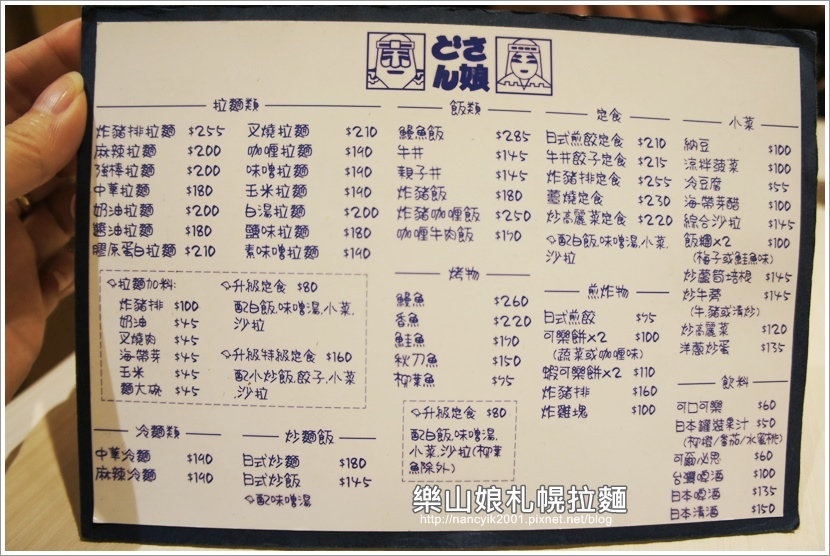 どさん娘
拉麵類
炸豬排拉麵 $255
麻辣拉麵 $200
強棒拉麵 $190
中華拉麵 $180
奶油拉麵 $200
醬油拉麵 $180
膠原蛋白拉麵 $210
叉燒拉麵 $210
咖哩拉麵 $190
味噌拉麵 $190
玉米拉麵 $190
白湯拉麵 $200
鹽味拉麵 $180
素味噌拉麵 $190
拉麵加料:
炸豬排 $100
奶油 $45
叉燒肉 $45
海帶芽 $45
玉米 $45
麵大碗 $45
升級定食 $80
配白飯,味噌湯,小菜,
沙拉
升級特級定食 $160
配小炒飯,餃子,小菜
,沙拉
冷麵類
中華冷麵 $190
麻辣冷麵 $190
炒麵飯
日式炒麵 $180
日式炒飯 $145
配味噌湯
飯類
鰻魚飯 $285
牛丼 $145
親子丼 $145
炸豬飯 $180
炸豬咖哩飯 $250
咖哩牛肉飯 $170
烤物
鰻魚 $260
香魚 $220
鮭魚 $170
秋刀魚 $150
柳葉魚 $95
升級定食 $80
配白飯,味噌湯,
小菜,沙拉(柳葉
魚除外)
定食
日式煎餃定食 $210
牛丼餃子定食 $215
炸豬排定食 $255
薑燒定食 $230
炒高麗菜定食 $220
配白飯,味噌湯,小菜,
沙拉
煎炸物
日式煎餃 $95
可樂餅×2 $100
(蔬菜或咖哩味)
蝦可樂餅×2 $110
炸豬排 $160
炸雞塊 $100
小菜
納豆 $100
涼拌菠菜 $100
冷豆腐 $55
海帶芽醋 $100
綜合沙拉 $145
飯糰×2 $100
(梅子或鮭魚味)
炒蘆筍培根 $145
炒牛蒡 $145
(牛,豬或清炒)
炒高麗菜 $120
洋蔥炒蛋 $135
飲料
可口可樂 $60
日本罐裝果汁 $50
(柳橙/番茄/水蜜桃)
可爾必思 $60
台灣啤酒 $100
日本啤酒 $135
日本清酒 $150
樂山娘札幌拉麵
http://nancyik2001.pixnet.net/blog